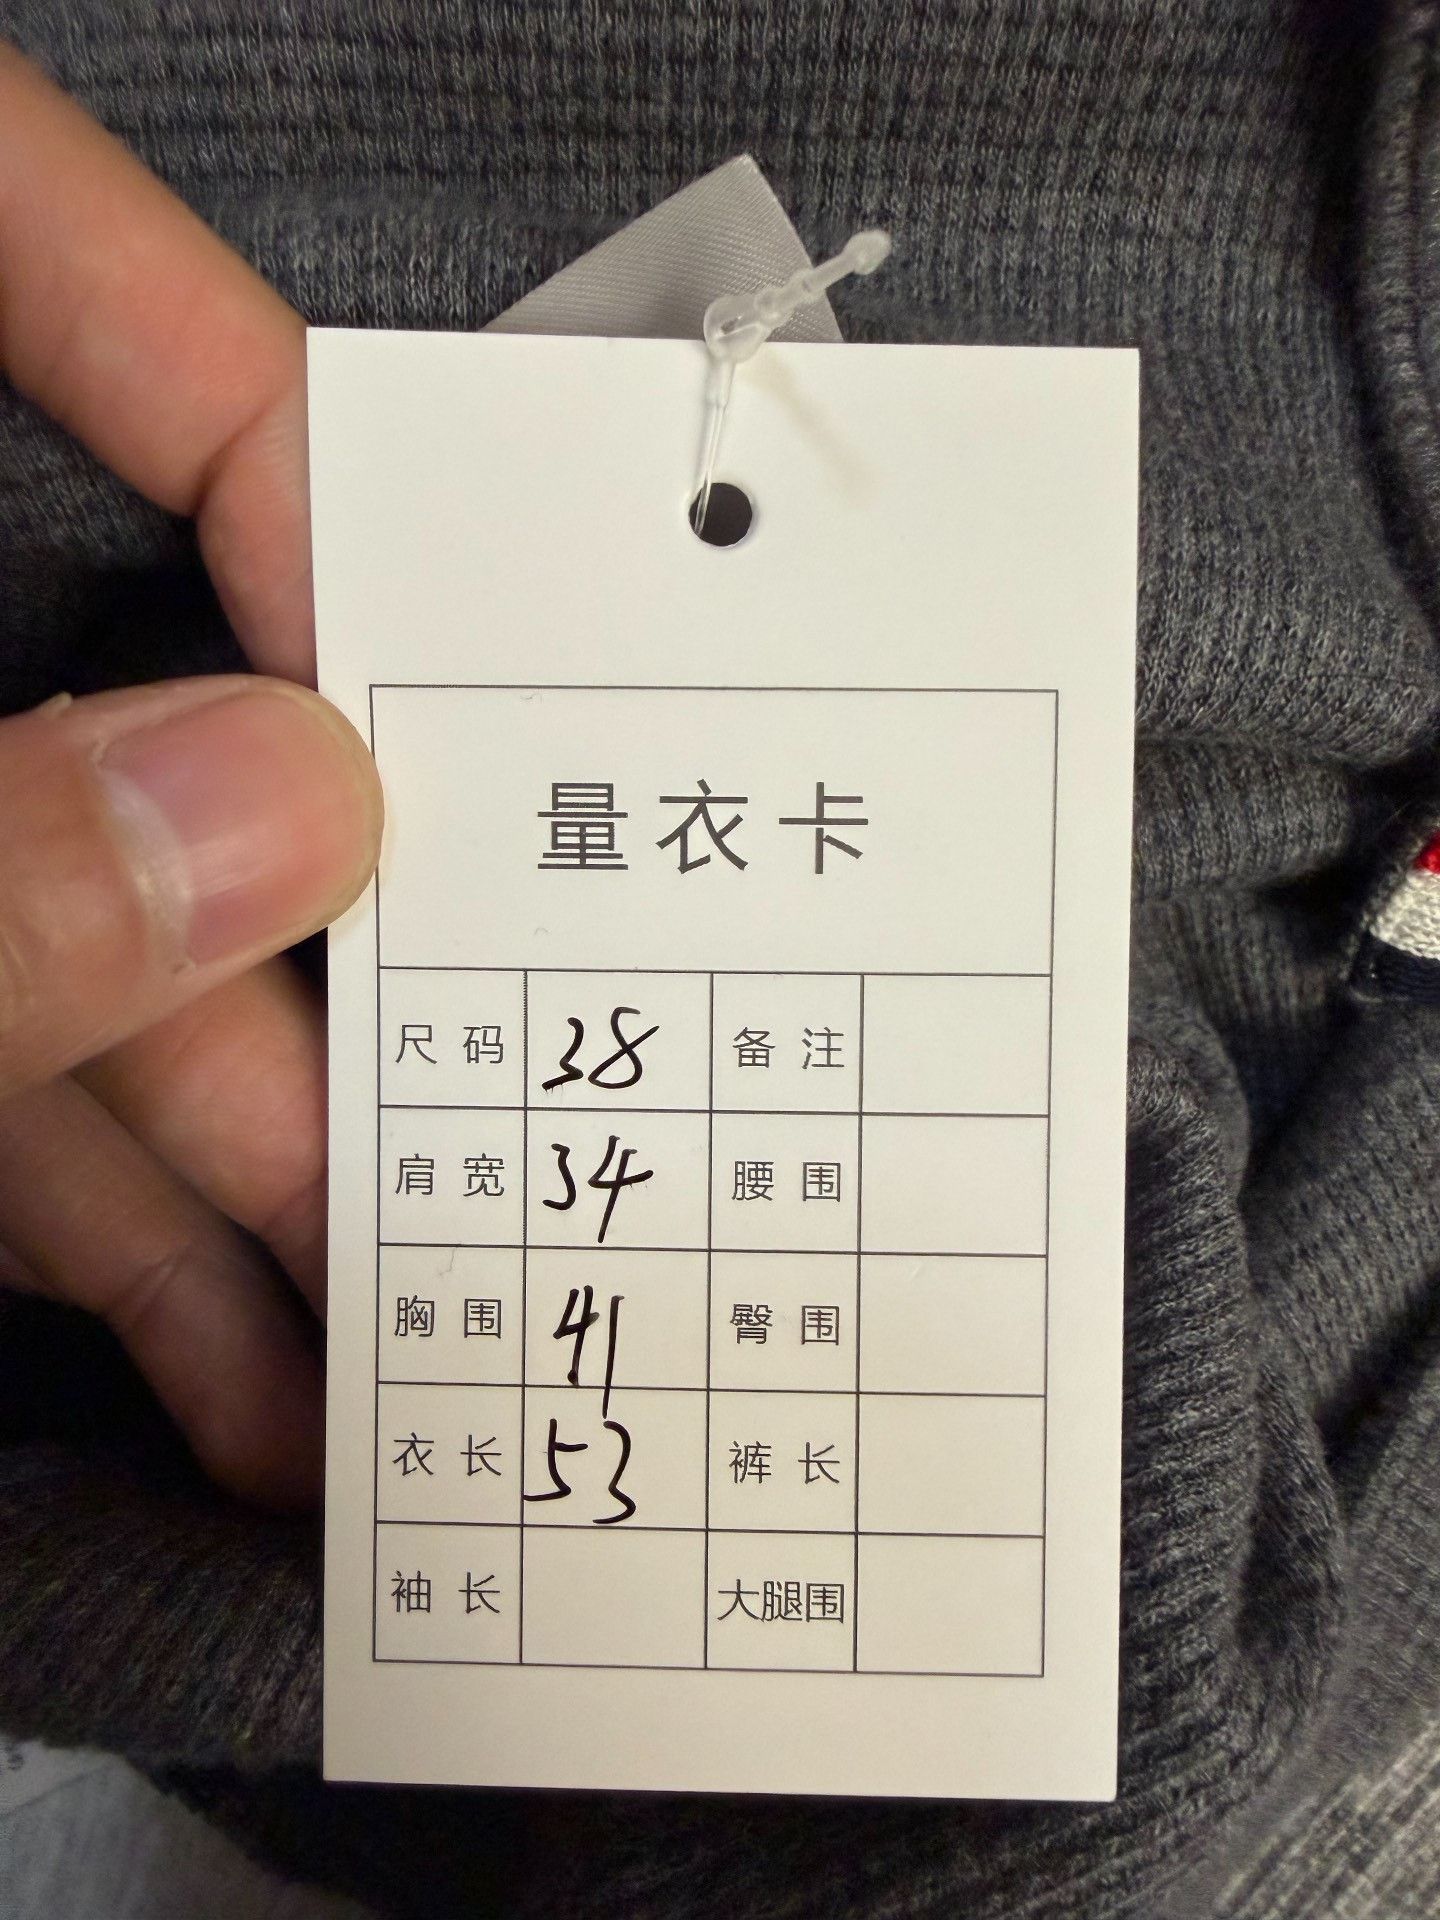 量衣卡
尺码 38 备注
肩宽 34 腰围
胸围 41 臀围
衣长 53 裤长
袖长 大腿围